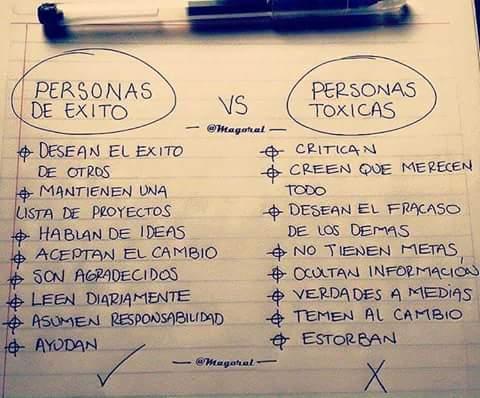 PERSONAS
DE EXITO
VS
PERSONAS
TOXICAS
@Magoral
DESEAN EL EXITO
DE OTROS
MANTIENEN UNA
LISTA DE PROYECTOS
HABLAN DE IDEAS
ACEPTAN EL CAMBIO
SON AGRADECIDOS
LEEN DIARIAMENTE
ASUMEN RESPONSABILIDAD
AYUDAN
CRITICAN
CREEN QUE MERECEN
TODO
DESEAN EL FRACASO
DE LOS DEMAS
NO TIENEN METAS
OCULTAN INFORMACIÓN
VERDADES A MEDIAS
TEMEN AL CAMBIO
ESTORBAN
@Magoral